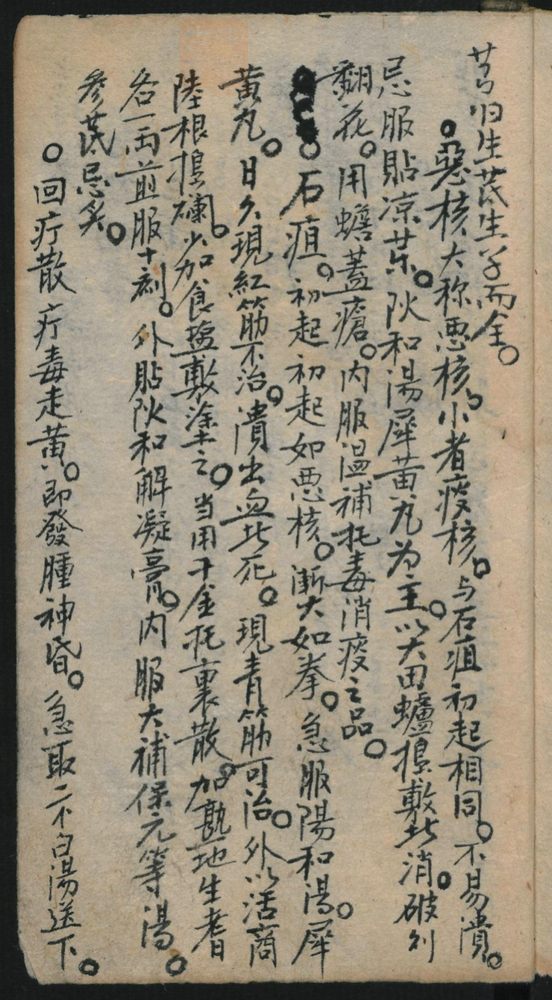 芎归生芪生芐而全。
。惡核大称悪核。小者痰核。与石疽初起相同。不易潰。
忌服貼凉药。阦和湯犀黄丸为主。以大田螺搗敷此消。破则
翻花。用蟾蓋瘡。内服温補托毒消痰之品。
。石疽。初起初起如悪核。漸大如拳。急服陽和湯。犀
黄丸。日久現紅筋不治。潰出血此死。現青筋可治。外以活商
陸根搗爛。少加食塩敷塗之。当用千金托裏散。加熟地生耆
各一両煎服十剤。外貼阦和解凝膏。内服大補保元等湯。
参芪忌炙。
。回疔散 疔毒走黄。即發腫神昏。急取二个白湯送下。